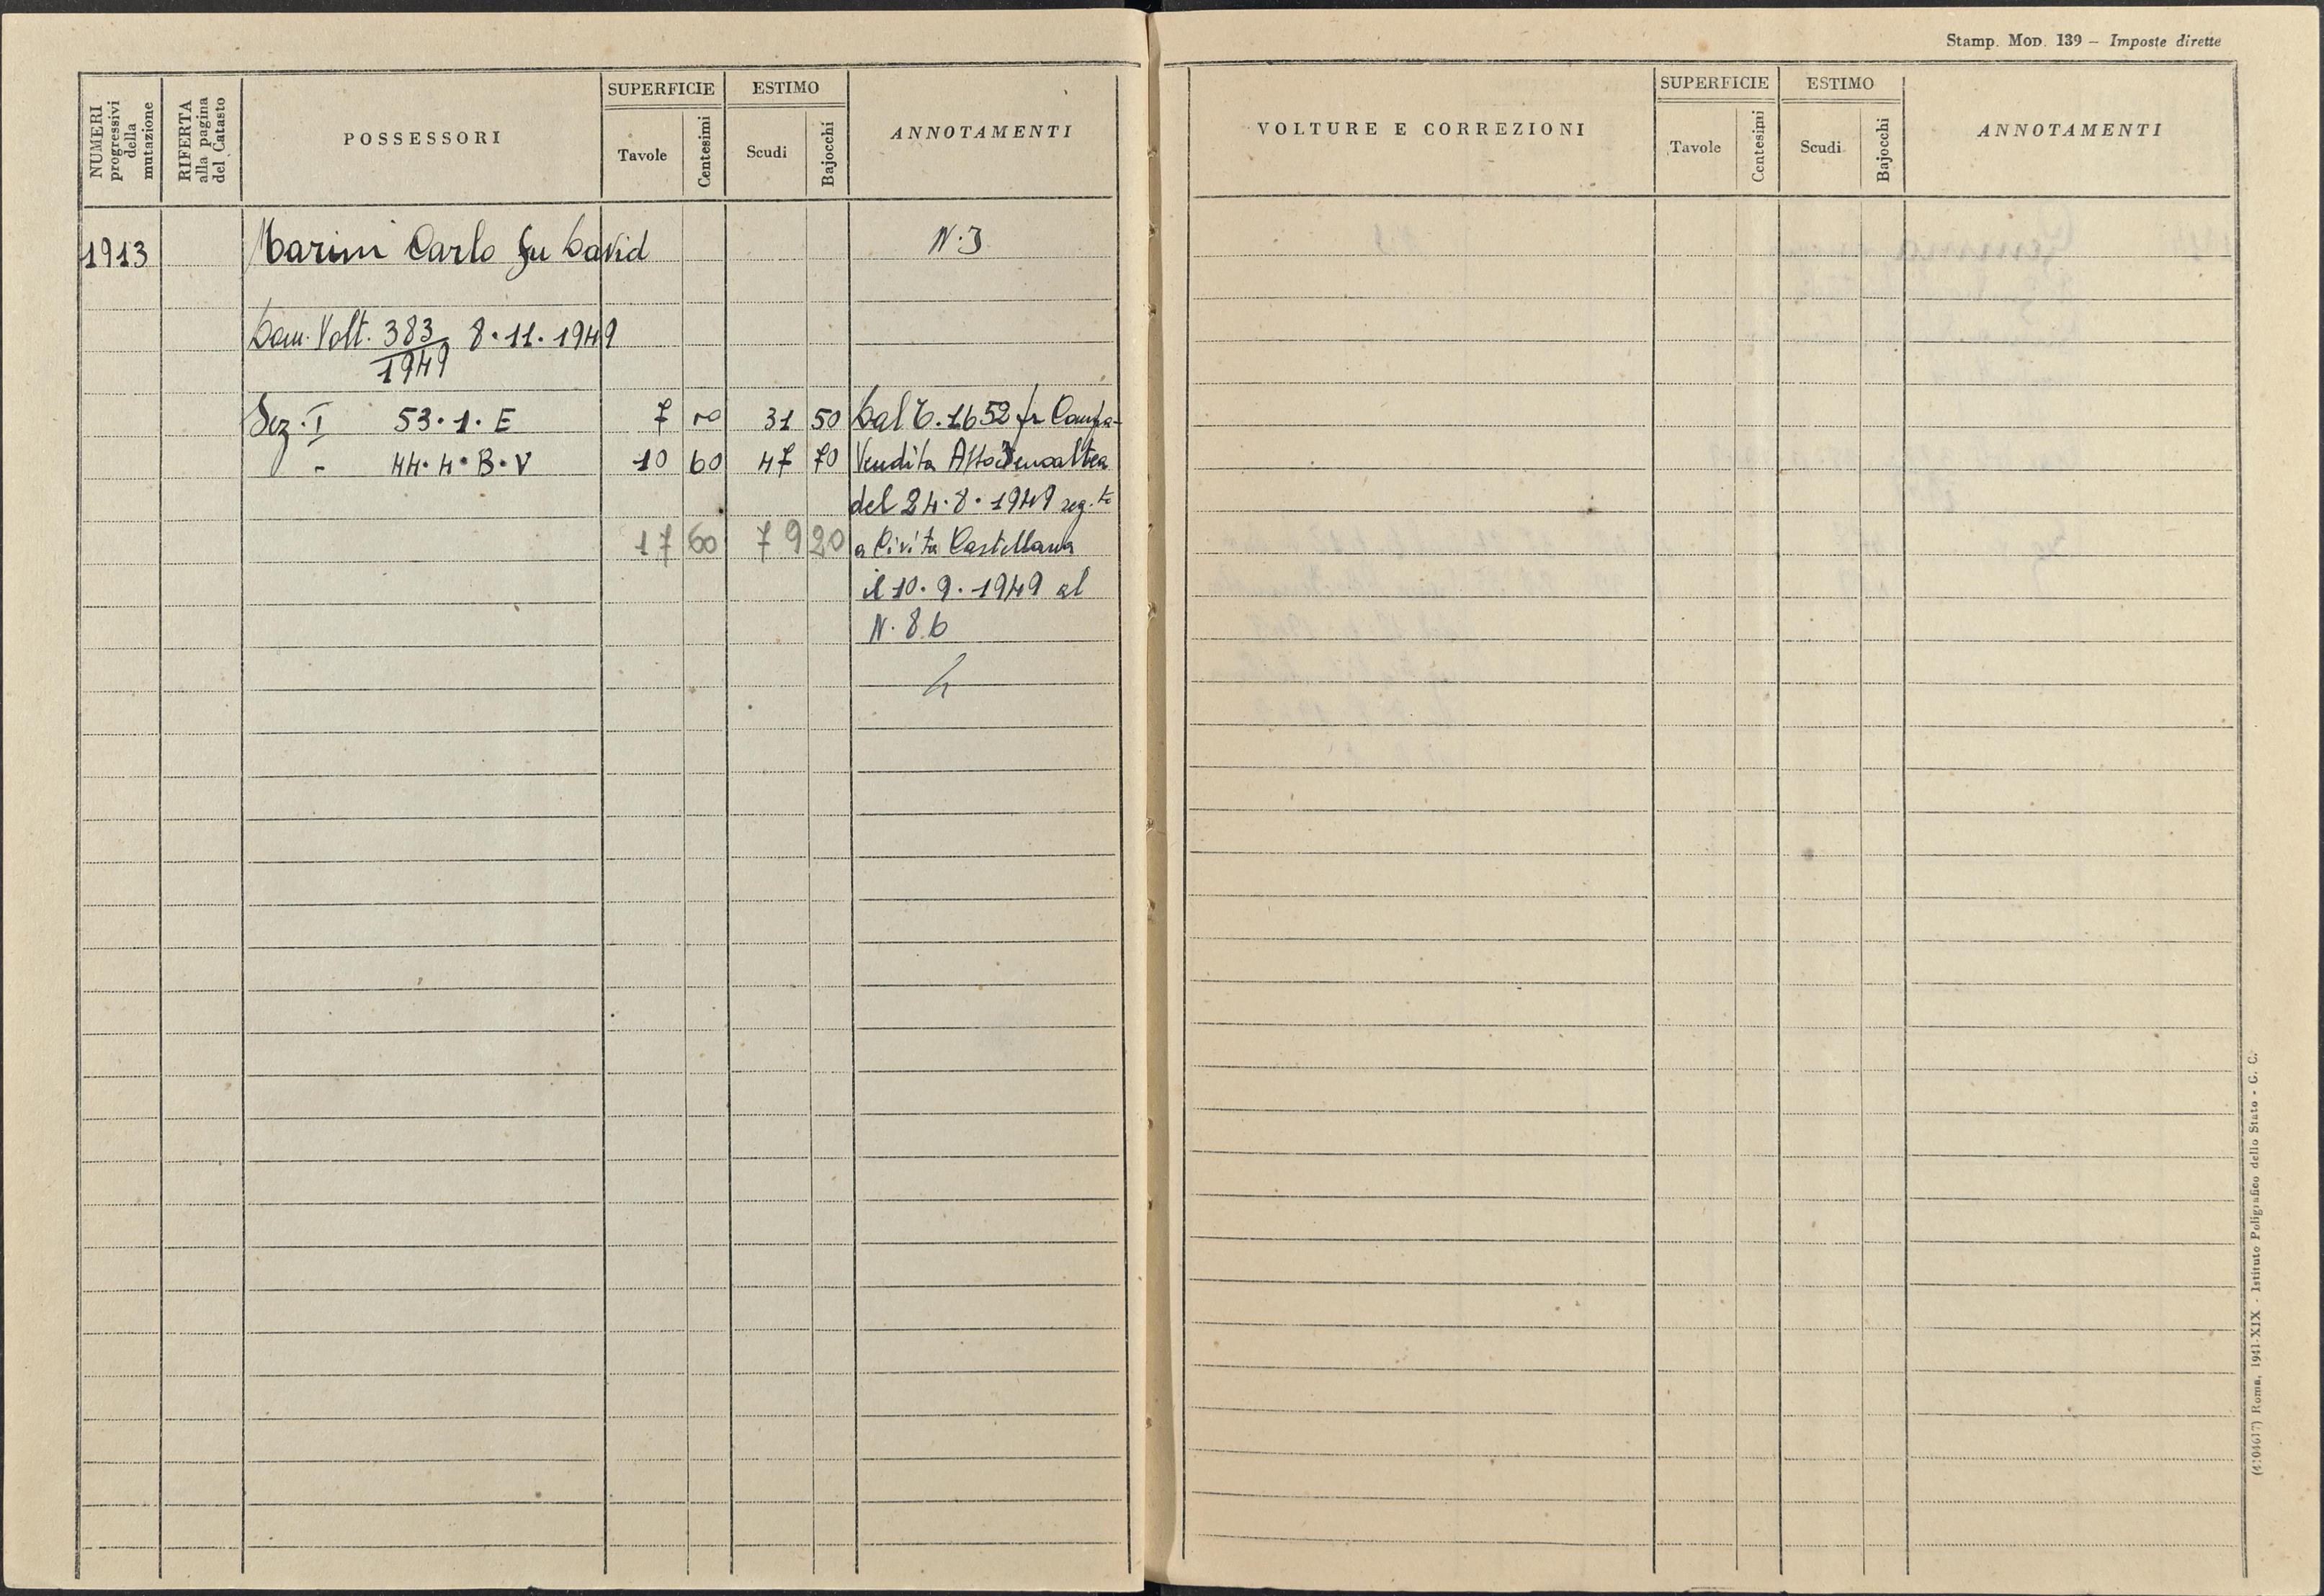 NUMERI progressivi della mutazione
RIFERTA alla pagina del Catasto
POSSESSORI
SUPERFICIE
Tavole
Centesimi
ESTIMO
Scudi
Bajocchi
ANNOTAMENTI
1913 Marini Carlo fu David N. 3
Dom. Volt. 383/1949 8.11.1949
Sez. I 53.1.E 7 00 31 50 Dal C. 1652 fr Compra-
" 44.4.B.V 10 60 47 70 Vendita Atto
del 24.8.1949 reg.to
17 60 79 20 a Civita Castellana
il 10.9.1949 al
N. 86
Stamp. Mod. 139 — Imposte dirette
VOLTURE E CORREZIONI
SUPERFICIE
Tavole
Centesimi
ESTIMO
Scudi
Bajocchi
ANNOTAMENTI
(4104617) Roma, 1941-XIX - Istituto Poligrafico dello Stato - G. C.